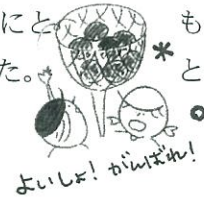 にと。 も
た。 * と
よいしょ! がんばれ!